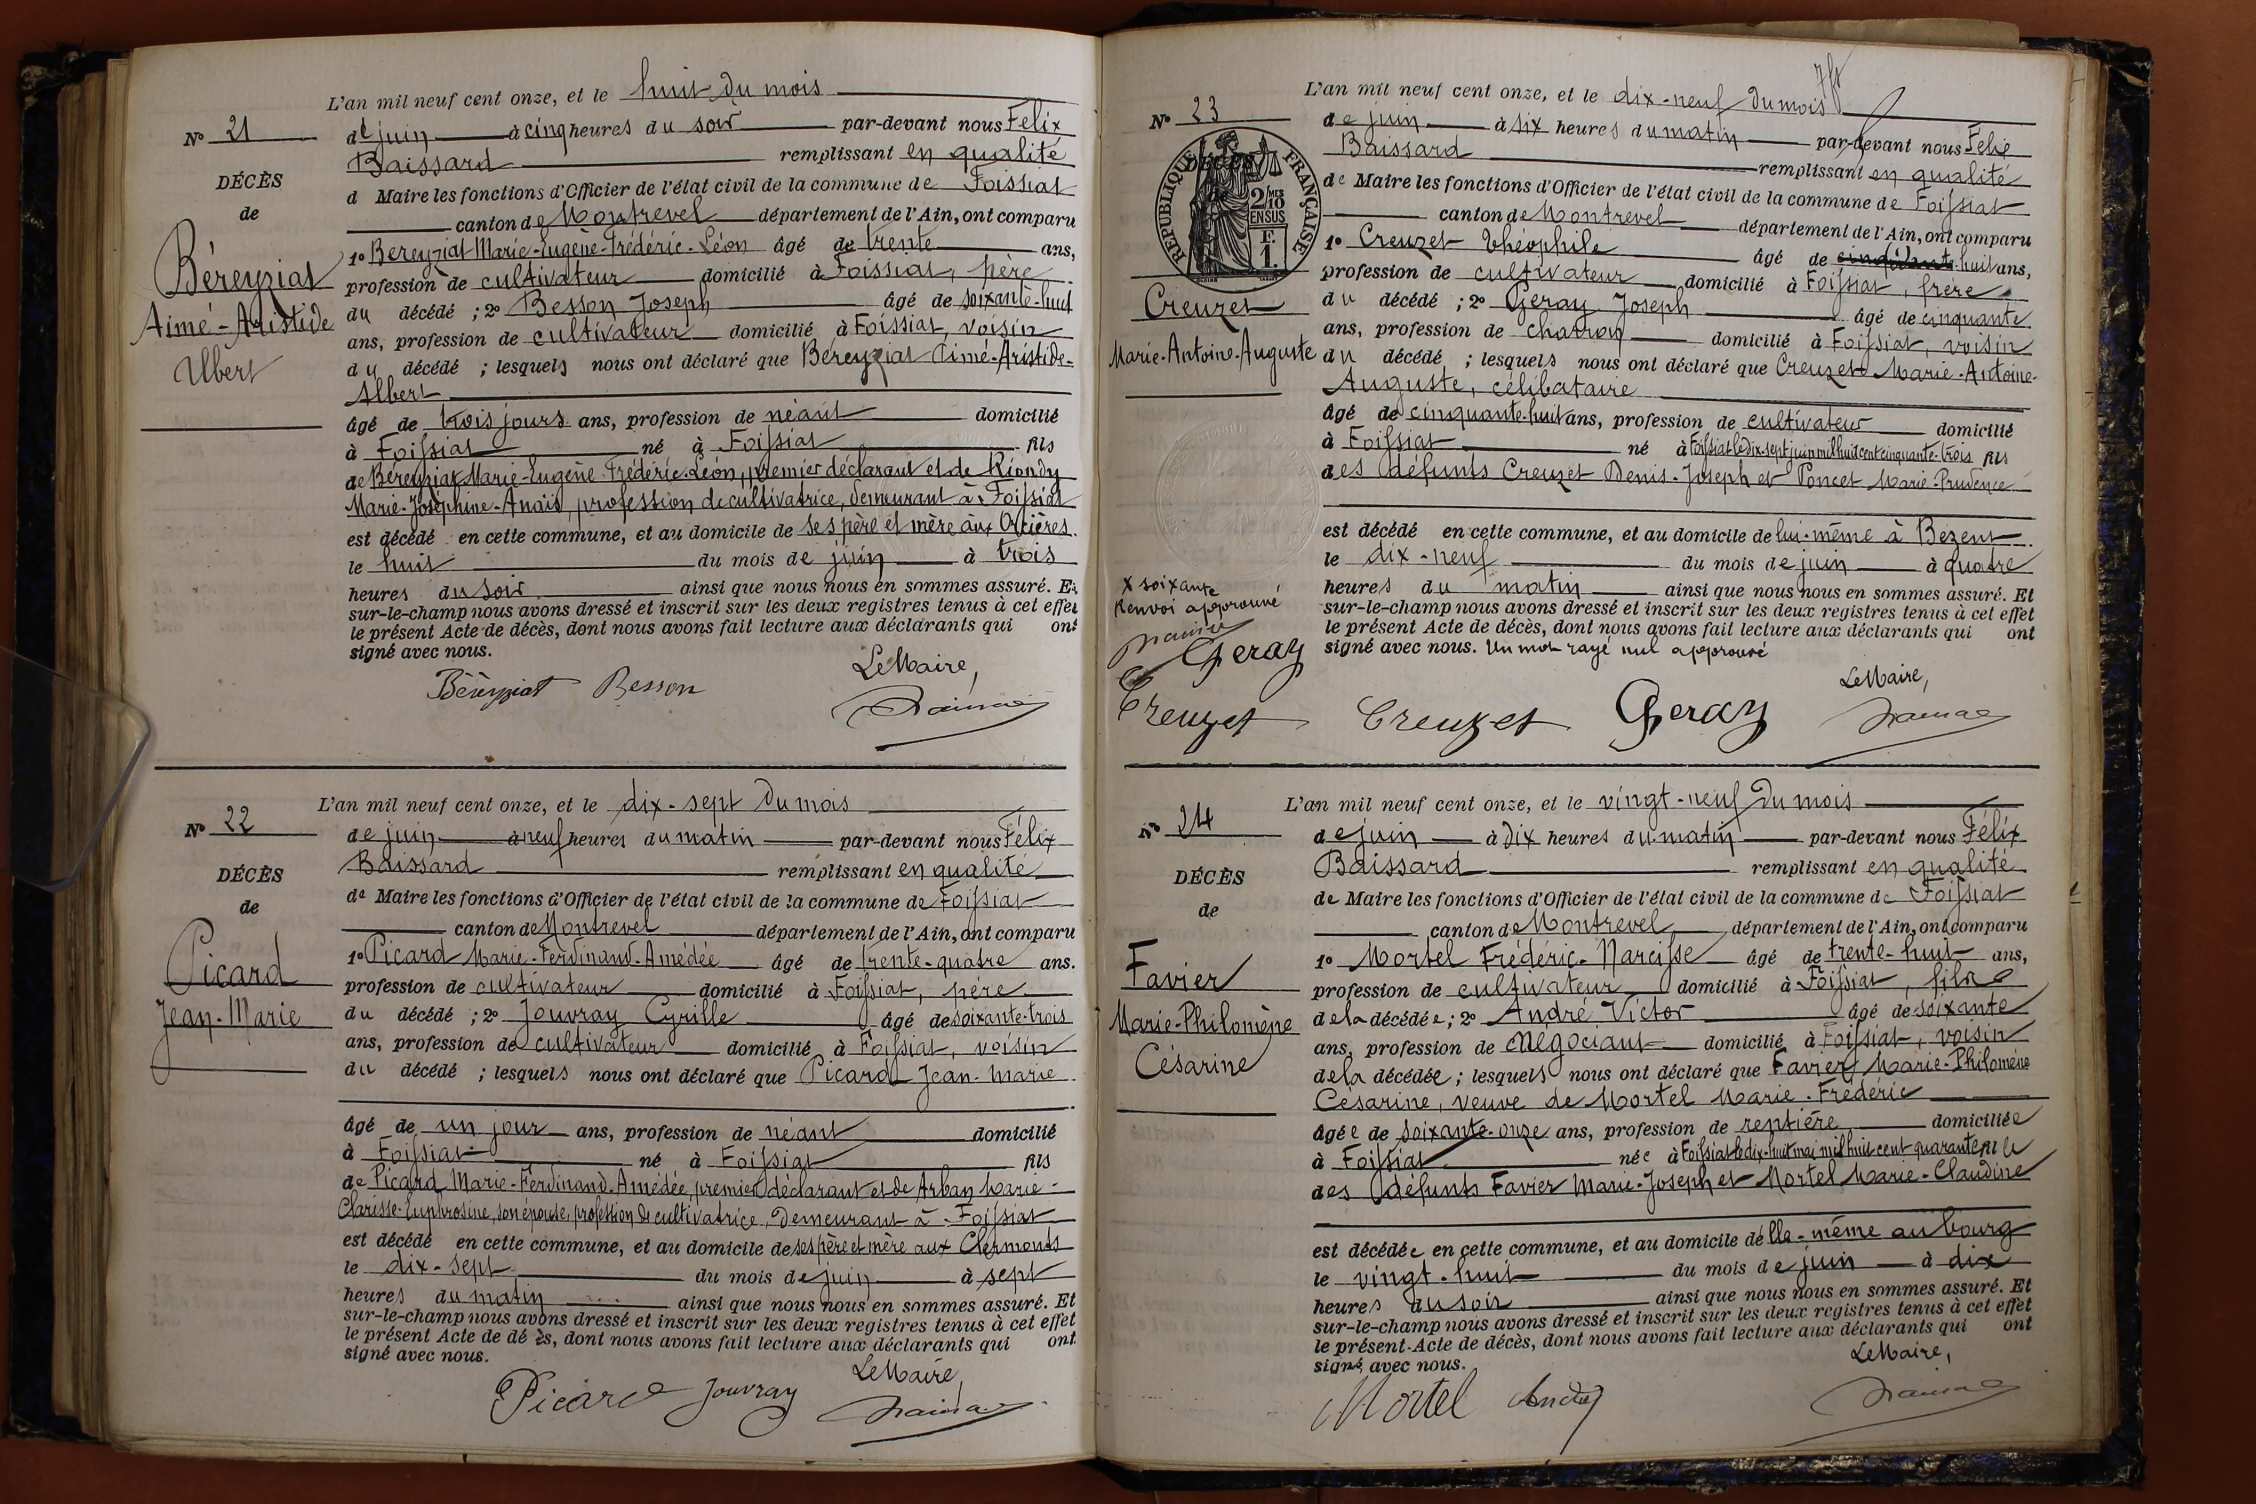 L'an mil neuf cent onze, et le huit du mois
N° 21
de juin à cinq heures du soir par-devant nous Félix
Baissard remplissant en qualité
DÉCÈS
d Maire les fonctions d'Officier de l'état civil de la commune de Foissiat
de
canton de Montrevel département de l'Ain, ont comparu
Béreyziat
1° Bereyziat Marie-Eugène-Frédéric-Léon âgé de trente ans,
profession de cultivateur domicilié à Foissiat, père
Aimé-Aristide
du décédé ; 2° Besson Joseph âgé de soixante-huit
ans, profession de cultivateur domicilié à Foissiat, voisin
Albert
du décédé ; lesquels nous ont déclaré que Béreyziat Aimé-Aristide-
Albert
âgé de trois jours ans, profession de néant domicilié
à Foissiat né à Foissiat fils
de Béreyziat Marie-Eugène-Frédéric-Léon, premier déclarant et de Riondy
Marie-Joséphine-Anaïs, profession de cultivatrice, demeurant à Foissiat
est décédé en cette commune, et au domicile de ses père et mère aux Orcières
le huit du mois de juin à trois
heures du soir ainsi que nous nous en sommes assuré. Et
sur-le-champ nous avons dressé et inscrit sur les deux registres tenus à cet effet
le présent Acte de décès, dont nous avons fait lecture aux déclarants qui ont
signé avec nous.
Le Maire,
Béreyziat Besson

L'an mil neuf cent onze, et le dix-sept du mois
N° 22
de juin à neuf heures du matin par-devant nous Félix
Baissard remplissant en qualité
DÉCÈS
de Maire les fonctions d'Officier de l'état civil de la commune de Foissiat
de
canton de Montrevel département de l'Ain, ont comparu
Picard
1° Picard Marie-Ferdinand-Amédée âgé de trente-quatre ans.
profession de cultivateur domicilié à Foissiat, père
Jean-Marie
du décédé ; 2° Jouvray Cyrille âgé de soixante-trois
ans, profession de cultivateur domicilié à Foissiat, voisin
du décédé ; lesquels nous ont déclaré que Picard Jean-Marie
âgé de un jour ans, profession de néant domicilié
à Foissiat né à Foissiat fils
de Picard Marie-Ferdinand-Amédée, premier déclarant et de Arban Marie-
Clarisse-Euphrosine, son épouse, profession de cultivatrice, demeurant à Foissiat
est décédé en cette commune, et au domicile de ses père et mère aux Clermonts
le dix-sept du mois de juin à sept
heures du matin ainsi que nous nous en sommes assuré. Et
sur-le-champ nous avons dressé et inscrit sur les deux registres tenus à cet effet
le présent Acte de dé ès, dont nous avons fait lecture aux déclarants qui ont
signé avec nous.
Le Maire,
Picard Jouvray

L'an mil neuf cent onze, et le dix-neuf du mois
N° 23
de juin à six heures du matin par-devant nous Félix
Baissard remplissant en qualité
RÉPUBLIQUE FRANÇAISE
2/10 EN SUS
de Maire les fonctions d'Officier de l'état civil de la commune de Foissiat
canton de Montrevel département de l'Ain, ont comparu
1° Creuzet Théophile âgé de cinquante-huit ans,
profession de cultivateur domicilié à Foissiat, frère
Creuzet
du décédé ; 2° Geray Joseph âgé de cinquante
ans, profession de charron domicilié à Foissiat, voisin
Marie-Antoine-Auguste
du décédé ; lesquels nous ont déclaré que Creuzet Marie-Antoine-
Auguste, célibataire
âgé de cinquante-huit ans, profession de cultivateur domicilié
à Foissiat né à Foissiat le dix-sept juin mil huit cent cinquante-trois fils
des défunts Creuzet Denis-Joseph et Poncet Marie-Prudence
est décédé en cette commune, et au domicile de lui-même à Bézent
le dix-neuf du mois de juin à quatre
x soixante
Renvoi approuvé
Geray
Creuzet
heures du matin ainsi que nous nous en sommes assuré. Et
sur-le-champ nous avons dressé et inscrit sur les deux registres tenus à cet effet
le présent Acte de décès, dont nous avons fait lecture aux déclarants qui ont
signé avec nous. Un mot rayé nul approuvé
Le Maire,
Creuzet Geray

L'an mil neuf cent onze, et le vingt-neuf du mois
N° 24
de juin à dix heures du matin par-devant nous Félix
Baissard remplissant en qualité
DÉCÈS
de Maire les fonctions d'Officier de l'état civil de la commune de Foissiat
de
canton de Montrevel département de l'Ain, ont comparu
Favier
1° Mortel Frédéric-Narcisse âgé de trente-huit ans,
profession de cultivateur domicilié à Foissiat, fils
Marie-Philomène
de la décédée ; 2° André Victor âgé de soixante
ans, profession de négociant domicilié à Foissiat, voisin
Césarine
de la décédée ; lesquels nous ont déclaré que Favier Marie-Philomène
Césarine, veuve de Mortel Marie-Frédéric
âgée de soixante-onze ans, profession de rentière domiciliée
à Foissiat née à Foissiat le dix-huit mai mil huit cent quarante fille
des défunts Favier Marie-Joseph et Mortel Marie-Claudine
est décédée en cette commune, et au domicile d'elle-même au bourg
le vingt-huit du mois de juin à dix
heures du soir ainsi que nous nous en sommes assuré. Et
sur-le-champ nous avons dressé et inscrit sur les deux registres tenus à cet effet
le présent Acte de décès, dont nous avons fait lecture aux déclarants qui ont
signé avec nous.
Le Maire,
Mortel André